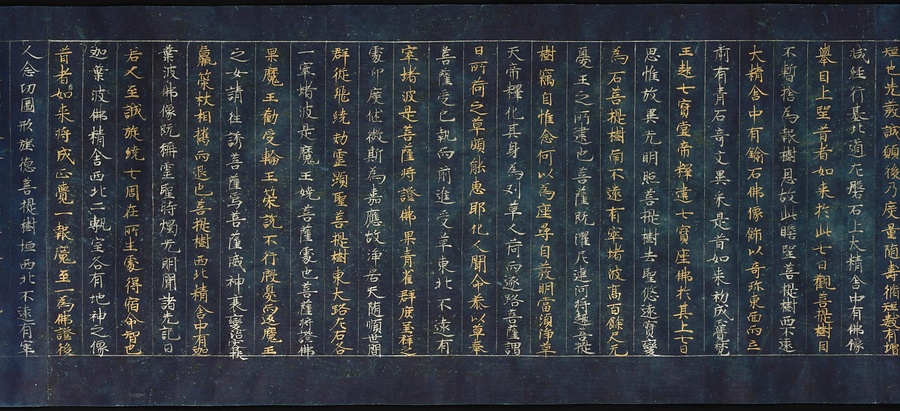 短也先發誠願後乃度量隨壽脩短數有增
減經行基北道左磐石上大精舍中有佛像
舉目上望昔者如來於此七日觀菩提樹目
不暫捨為報樹恩故此瞻望菩提樹西不遠
大精舍中有鍮石佛像飾以奇珍東面而立
前有青石奇文異采是昔如來初成覺梵
王起七寶堂帝釋建七寶座佛於其上七日
思惟放異光明照菩提樹去聖悠遠寶變
為石菩提樹南不遠有窣堵波高百餘尺无
憂王之所建也菩薩既濯尼連河將趣菩提
樹竊自惟念何以為座尋自發明當須淨草
天帝釋化其身為刈草人荷而逐路菩薩謂
曰所荷之草頗能惠耶化人聞命恭以草奉
菩薩受已執而前進受草東北不遠有
窣堵波是菩薩將證佛果青雀群鹿呈祥之
處印度休徵斯為嘉應故淨居天隨順世間
群從飛繞効靈顯聖菩提樹東大路左右各
一窣堵波是魔王嬈菩薩處也菩薩將證佛
果魔王勸受輪王策說不行殷憂而返魔王
之女請往誘菩薩菩薩威神衰變冶容扶
羸策杖相携而退也菩提樹西北精舍中有迦
葉波佛像既稱靈聖時燭光明聞諸先記曰
若人至誠旋繞七周在所生處得宿命智也
迦葉波佛精舍西北二甎室各有地神之像
昔者如來將成正覺一報魔至一為佛證後
人念功圖形旌德菩提樹垣西北不遠有窣